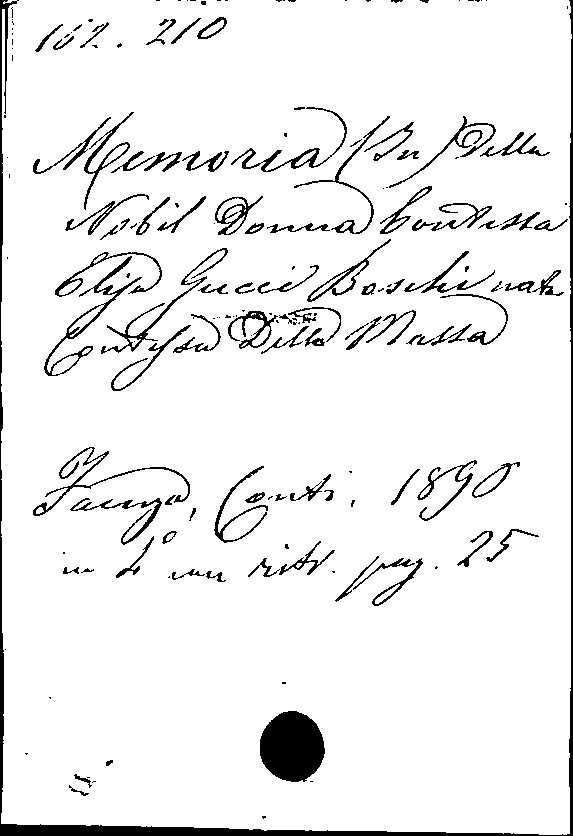 152. 210
Memoria (In) Della
Nobil Donna Contessa
Elisa Gucci Boschi nata
Contessa Della Massa
Faenza, Conti, 1890
in 4° con ritr. pag. 25